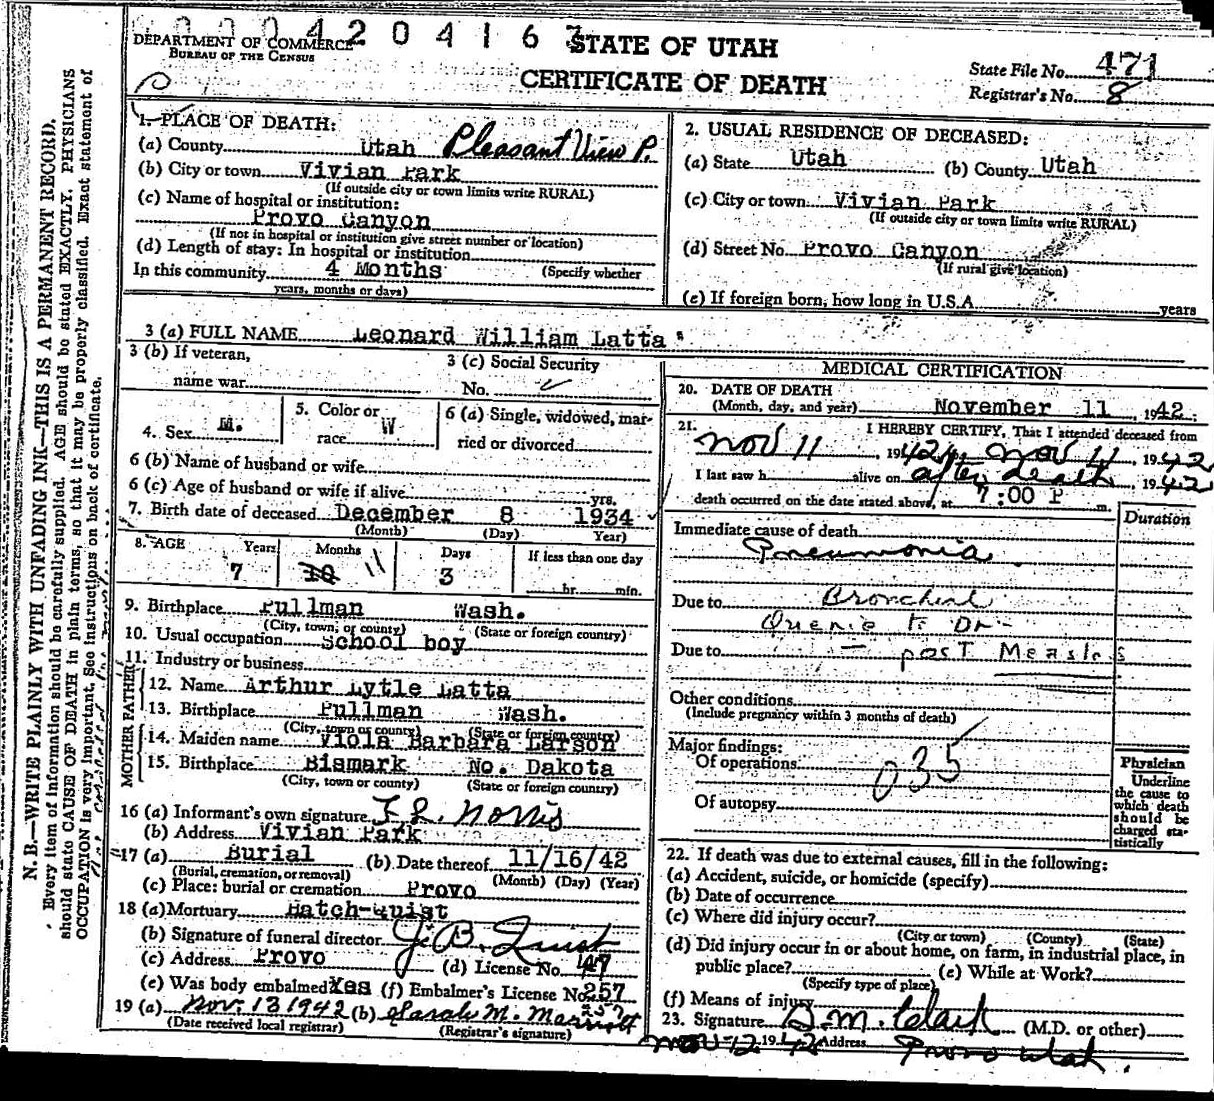 0 0 0 4 2 0 4 1 6 7
DEPARTMENT OF COMMERCE
BUREAU OF THE CENSUS
STATE OF UTAH
CERTIFICATE OF DEATH
State File No. 471
Registrar's No. 8
1. PLACE OF DEATH:
(a) County Utah Pleasant View P.
(b) City or town Vivian Park
(If outside city or town limits write RURAL)
(c) Name of hospital or institution:
Provo Canyon
(If not in hospital or institution give street number or location)
(d) Length of stay: In hospital or institution
In this community 4 Months (Specify whether
years, months or days)
2. USUAL RESIDENCE OF DECEASED:
(a) State Utah (b) County Utah
(c) City or town Vivian Park
(If outside city or town limits write RURAL)
(d) Street No. Provo Canyon
(If rural give location)
(e) If foreign born, how long in U.S.A. years
3 (a) FULL NAME Leonard William Latta
3 (b) If veteran,
name war
3 (c) Social Security
No.
4. Sex M.
5. Color or
race W
6 (a) Single, widowed, mar-
ried or divorced
6 (b) Name of husband or wife
6 (c) Age of husband or wife if alive yrs.
7. Birth date of deceased December 8 1934
(Month) (Day) Year)
8. AGE Years Months Days If less than one day
7 10 11 3 hr. min.
9. Birthplace Pullman Wash.
(City, town, or county) (State or foreign country)
10. Usual occupation School boy
11. Industry or business
FATHER
12. Name Arthur Lytle Latta
13. Birthplace Pullman Wash.
(City, town or county) (State or foreign country)
MOTHER
14. Maiden name Viola Barbara Larson
15. Birthplace Bismark No. Dakota
(City, town or county) (State or foreign country)
16 (a) Informant's own signature F L. Norris
(b) Address Vivian Park
17 (a) Burial (b) Date thereof 11/16/42
(Burial, cremation, or removal) (Month) (Day) (Year)
(c) Place: burial or cremation Provo
18 (a) Mortuary Hatch-Quist
(b) Signature of funeral director J. B. Quist
(c) Address Provo (d) License No. 47
(e) Was body embalmed Yes (f) Embalmer's License No. 257
19 (a) Nov. 13 1942 (b) Sarah M. Marriott
(Date received local registrar) (Registrar's signature)
MEDICAL CERTIFICATION
20. DATE OF DEATH
(Month, day, and year) November 11, 1942.
21. I HEREBY CERTIFY, That I attended deceased from
Nov 11, 1942, to Nov 11, 1942
I last saw h alive on after death, 1942
death occurred on the date stated above, at 7:00 P m.
Duration
Immediate cause of death
Pneumonia
Due to Bronchial
Querie to Dr-
Due to — post Measles
Other conditions
(Include pregnancy within 3 months of death)
Major findings:
Of operations
035
Of autopsy
Physician
Underline
the cause to
which death
should be
charged sta-
tistically
22. If death was due to external causes, fill in the following:
(a) Accident, suicide, or homicide (specify)
(b) Date of occurrence
(c) Where did injury occur?
(City or town) (County) (State)
(d) Did injury occur in or about home, on farm, in industrial place, in
public place? (e) While at Work?
(Specify type of place)
(f) Means of injury
23. Signature D. M. Clark (M.D. or other)
Nov-12 1942 Address Provo Utah.
N. B.—WRITE PLAINLY WITH UNFADING INK—THIS IS A PERMANENT RECORD.
Every item of information should be carefully supplied. AGE should be stated EXACTLY. PHYSICIANS
should state CAUSE OF DEATH in plain terms, so that it may be properly classified. Exact statement of
OCCUPATION is very important. See instructions on back of certificate.